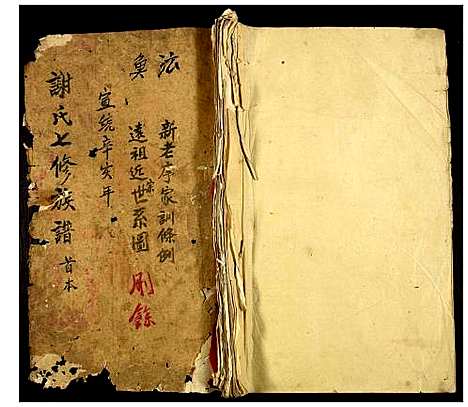 法
新老序家訓條例
遠祖近世系圖
宗
剛鎰
奐
宣統辛亥年
謝氏七修族譜 首本